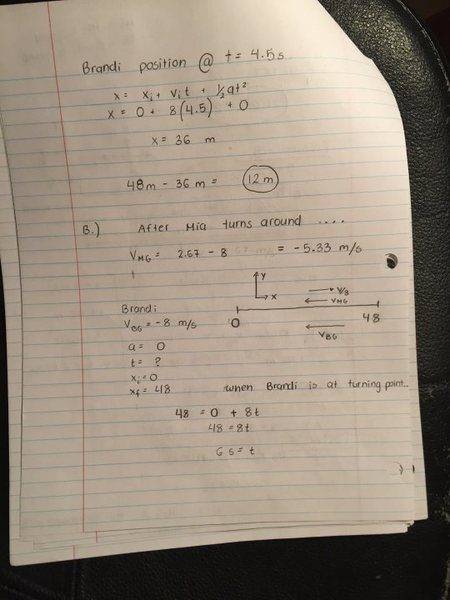 Brandi position @ t = 4.5s
x = xᵢ + vᵢt + ½at²
x = 0 + 8(4.5) + 0
x = 36 m
48m - 36m = 12m
B.) After Mia turns around ....
V_MG = 2.67 - 8 = -5.33 m/s
y
x
V_MG
0
48
V_BG
Brandi
V_BG = -8 m/s
a = 0
t = ?
xᵢ = 0
x_f = 48 when Brandi is at turning point..
48 = 0 + 8t
48 = 8t
6 s = t